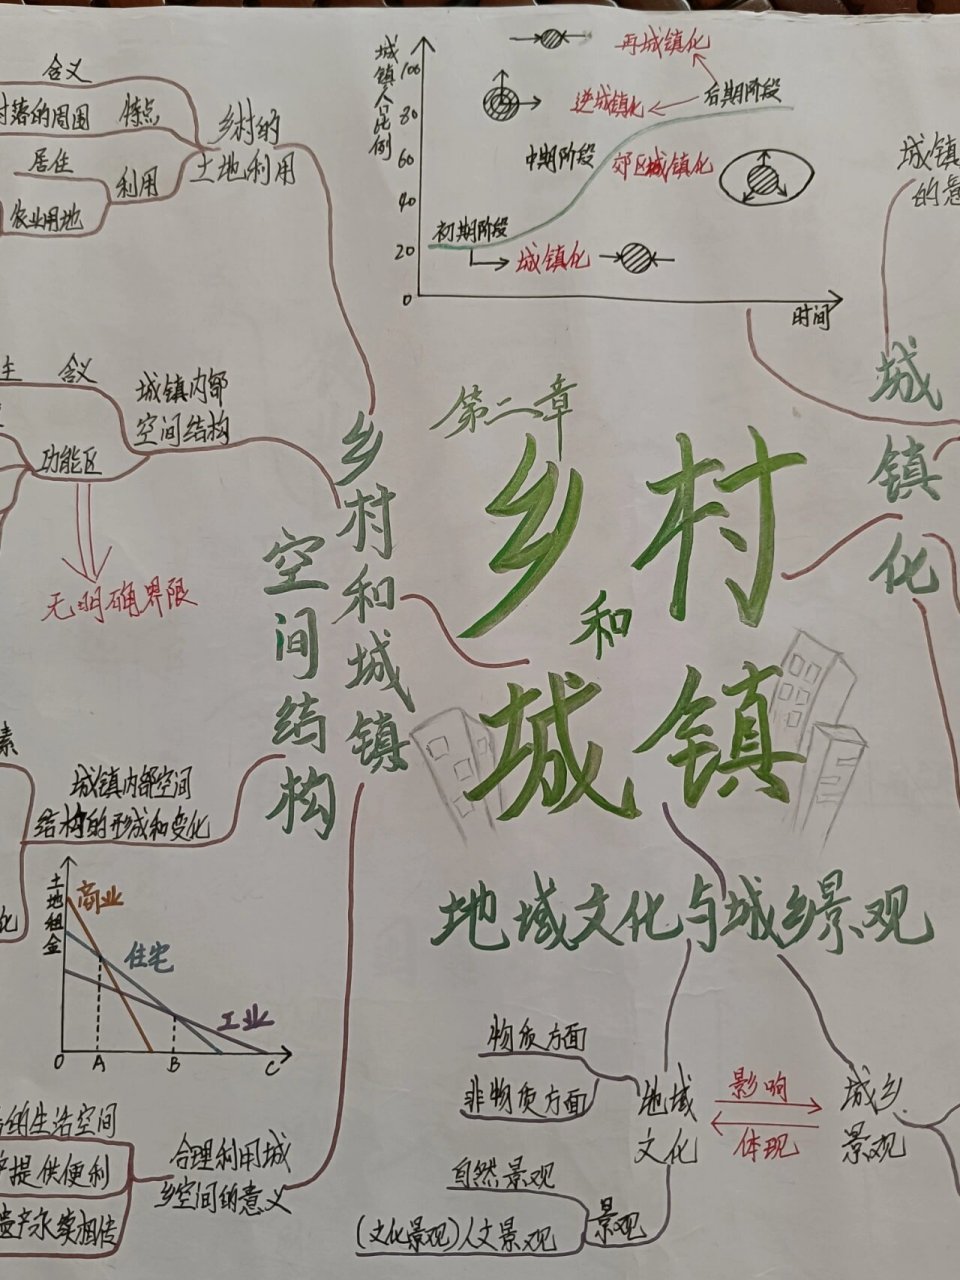 含义
村落的周围
特点
居住
利用
农业用地
乡村的
土地利用
城镇人口比例
100
80
60
40
20
0
再城镇化
逆城镇化
后期阶段
中期阶段
郊区城镇化
初期阶段
城镇化
时间
城镇
的景
含义
城镇内部
空间结构
功能区
无明确界限
乡村和城镇
空间结构
第二章
乡村
和
城镇
城镇化
素
城镇内部空间
结构的形成和变化
化
土地租金
商业
住宅
工业
0 A B C
的生活空间
提供便利
遗产永续相传
合理利用城
乡空间的意义
地域文化与城乡景观
物质方面
非物质方面
地域
文化
影响
体现
城乡
景观
自然景观
(文化景观)人文景观
景观